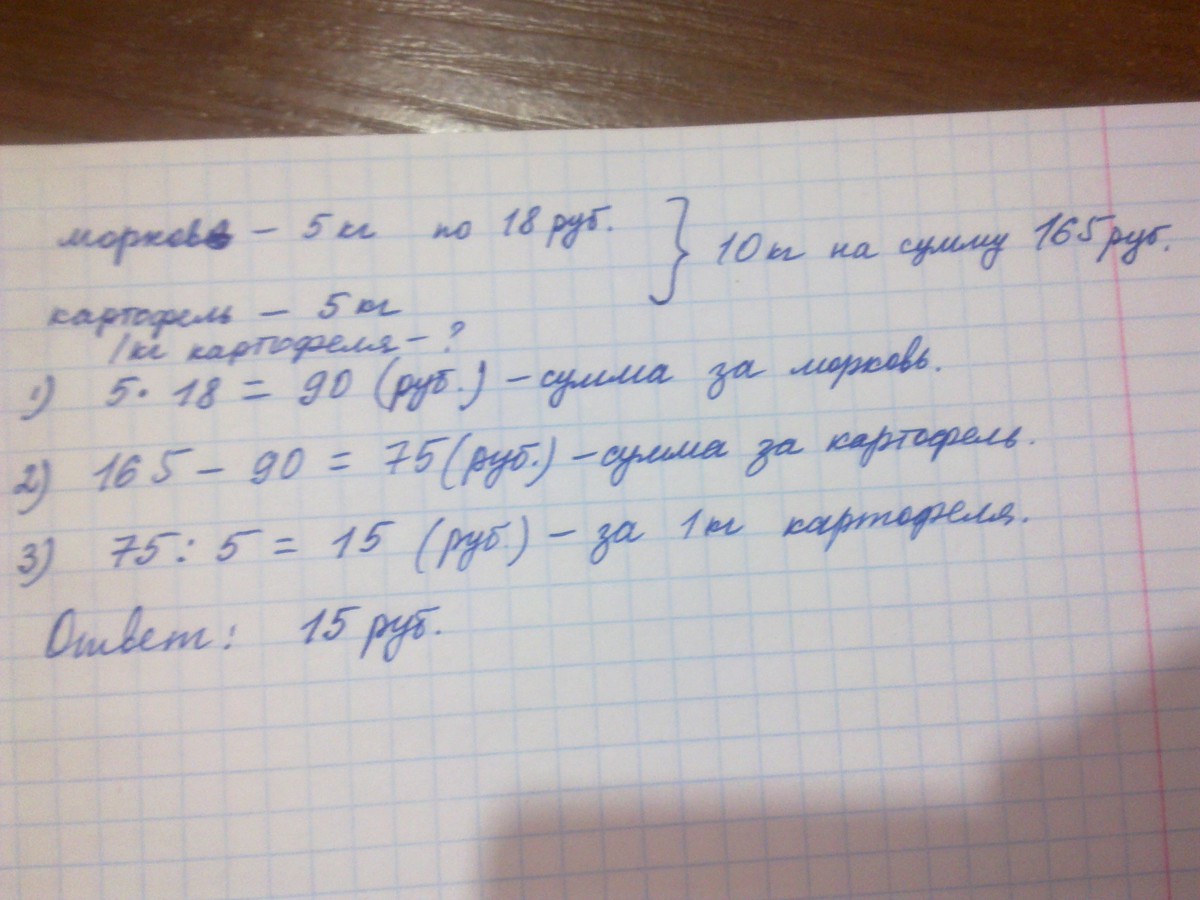 морковь – 5 кг по 18 руб. } 10 кг на сумму 165 руб.
картофель – 5 кг
1 кг картофеля – ?
1) 5 · 18 = 90 (руб.) – сумма за морковь.
2) 165 – 90 = 75 (руб.) – сумма за картофель.
3) 75 : 5 = 15 (руб) – за 1 кг картофеля.
Ответ: 15 руб.